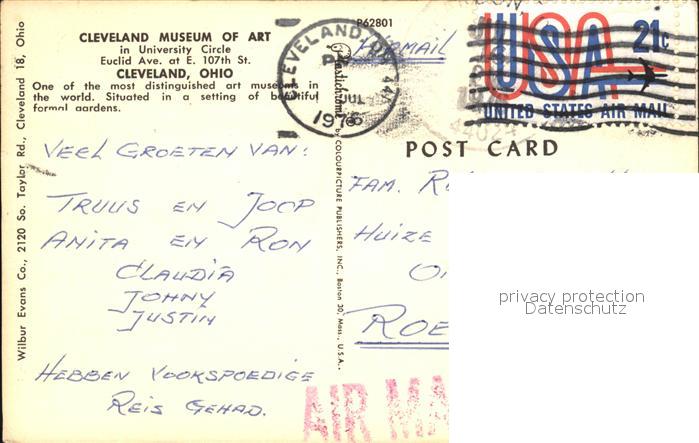 CLEVELAND MUSEUM OF ART
in University Circle
Euclid Ave. at E. 107th St.
CLEVELAND, OHIO
One of the most distinguished art museums in
the world. Situated in a setting of beautiful
formal gardens.
Wilbur Evans Co., 2120 So. Taylor Rd., Cleveland 18, Ohio
VEEL GROETEN VAN:
TRUUS EN JOOP
ANITA EN RON
CLAUDIA
JOHNY
JUSTIN
HEBBEN VOOKSPOEDIGE
REIS GEHAD.
P62801
Plastichrome by COLOURPICTURE PUBLISHERS, INC., Boston 30, Mass., U.S.A.
CLEVELAND, OH 441
PM
JUL
1976
AIRMAIL
USA 21c
UNITED STATES AIR MAIL
POST CARD
FAM.
HUIZE
ROE
AIR MA
privacy protection
Datenschutz